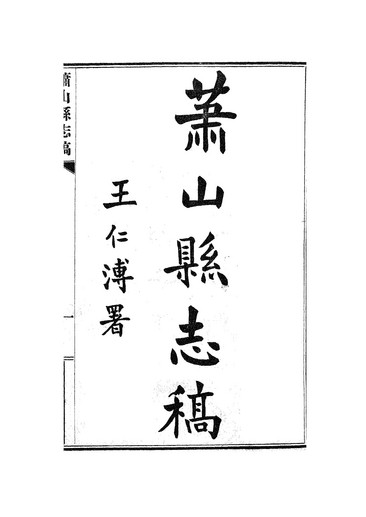 蕭山縣志稿
王仁溥署
蕭山縣志稿
一